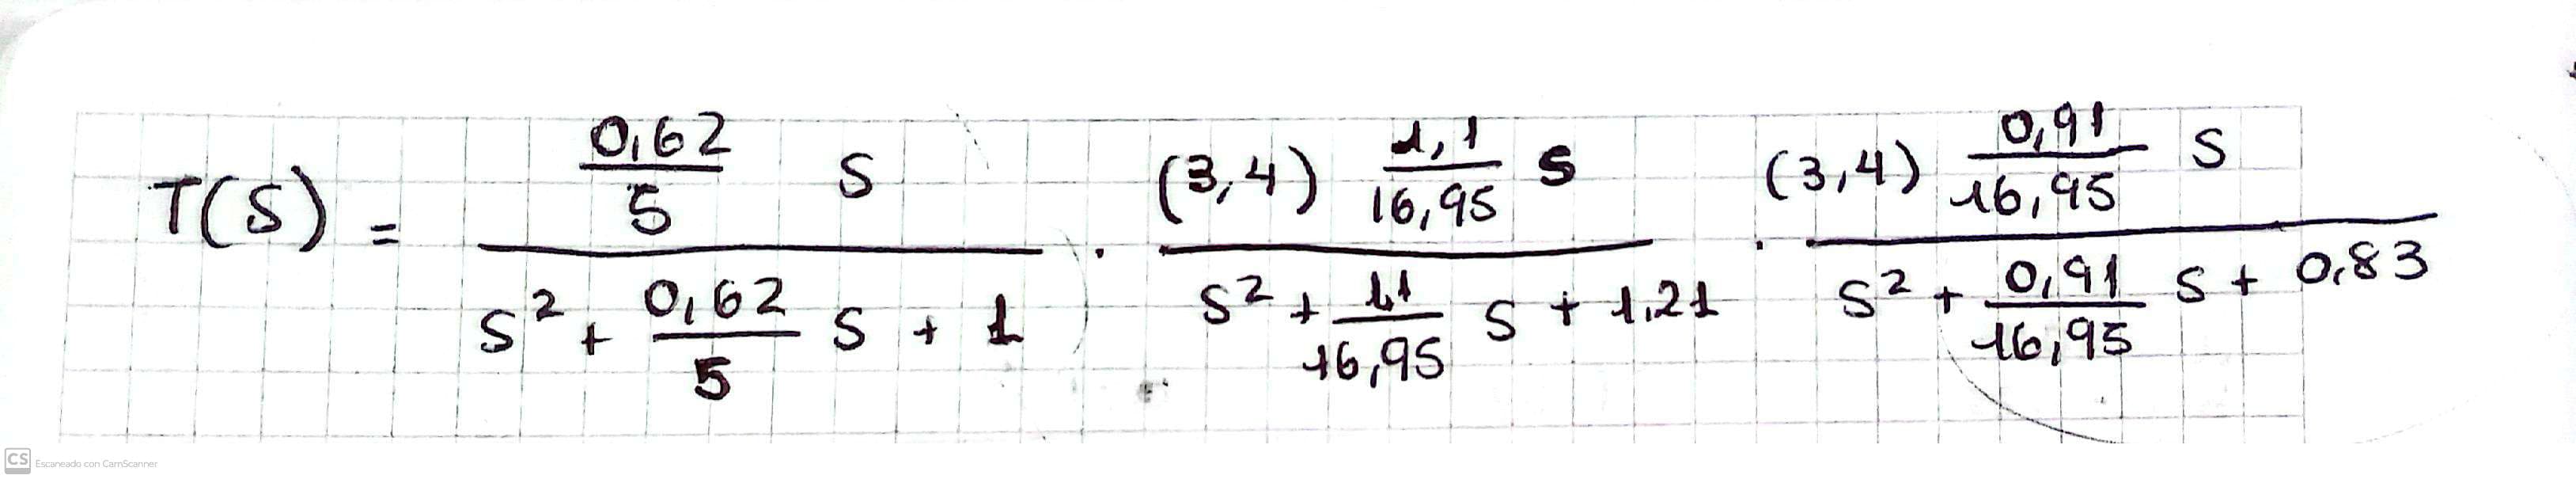 T(S) = \frac{\frac{0,62}{5} S}{S^2 + \frac{0,62}{5} S + 1} \cdot \frac{(3,4) \frac{1,1}{16,95} S}{S^2 + \frac{1,1}{16,95} S + 1,21} \cdot \frac{(3,4) \frac{0,91}{16,95} S}{S^2 + \frac{0,91}{16,95} S + 0,83}
CS Escaneado con CamScanner